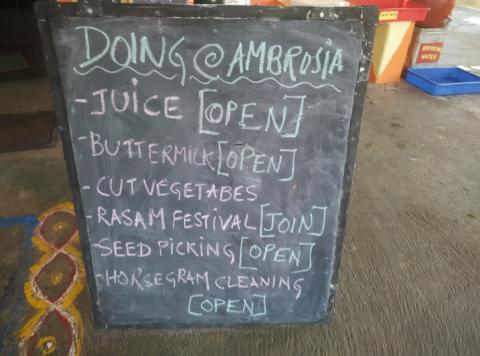 DOING @ AMBROSIA
-JUICE [OPEN]
-BUTTERMILK [OPEN]
-CUT VEGETABES
-RASAM FESTIVAL [JOIN]
-SEED PICKING [OPEN]
-HORSEGRAM CLEANING
[OPEN]
DRINKING
WATER